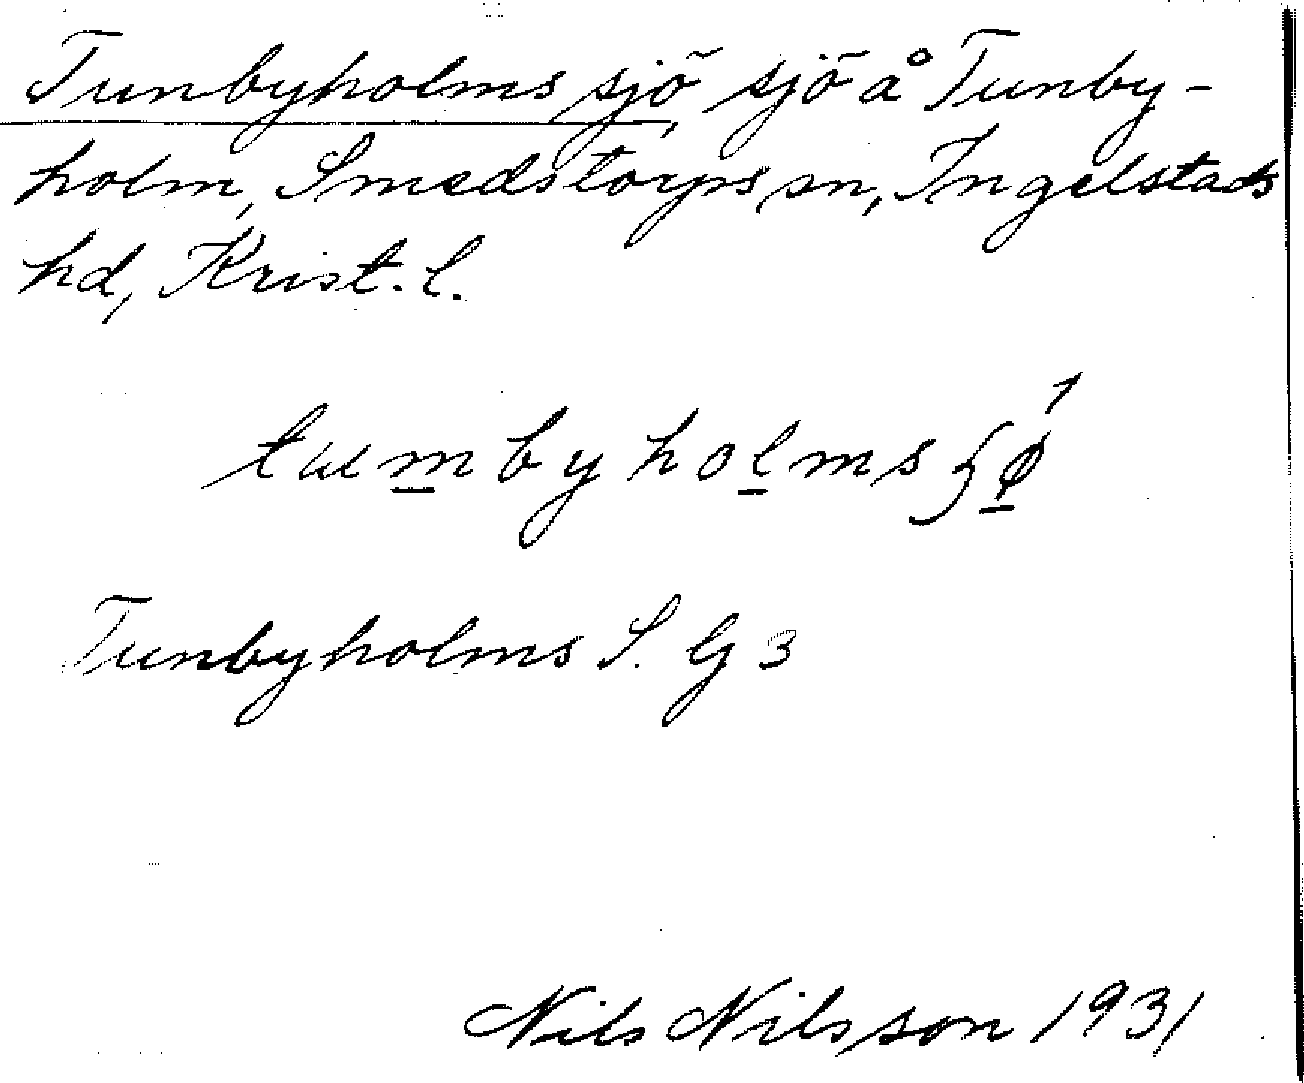 Tunbyholms sjö, sjö å Tunby-
holm, Smedstorps sn, Ingelstads
hd, Krist. l.
Tunbyholms S. G 3
Nils Nilsson 1931